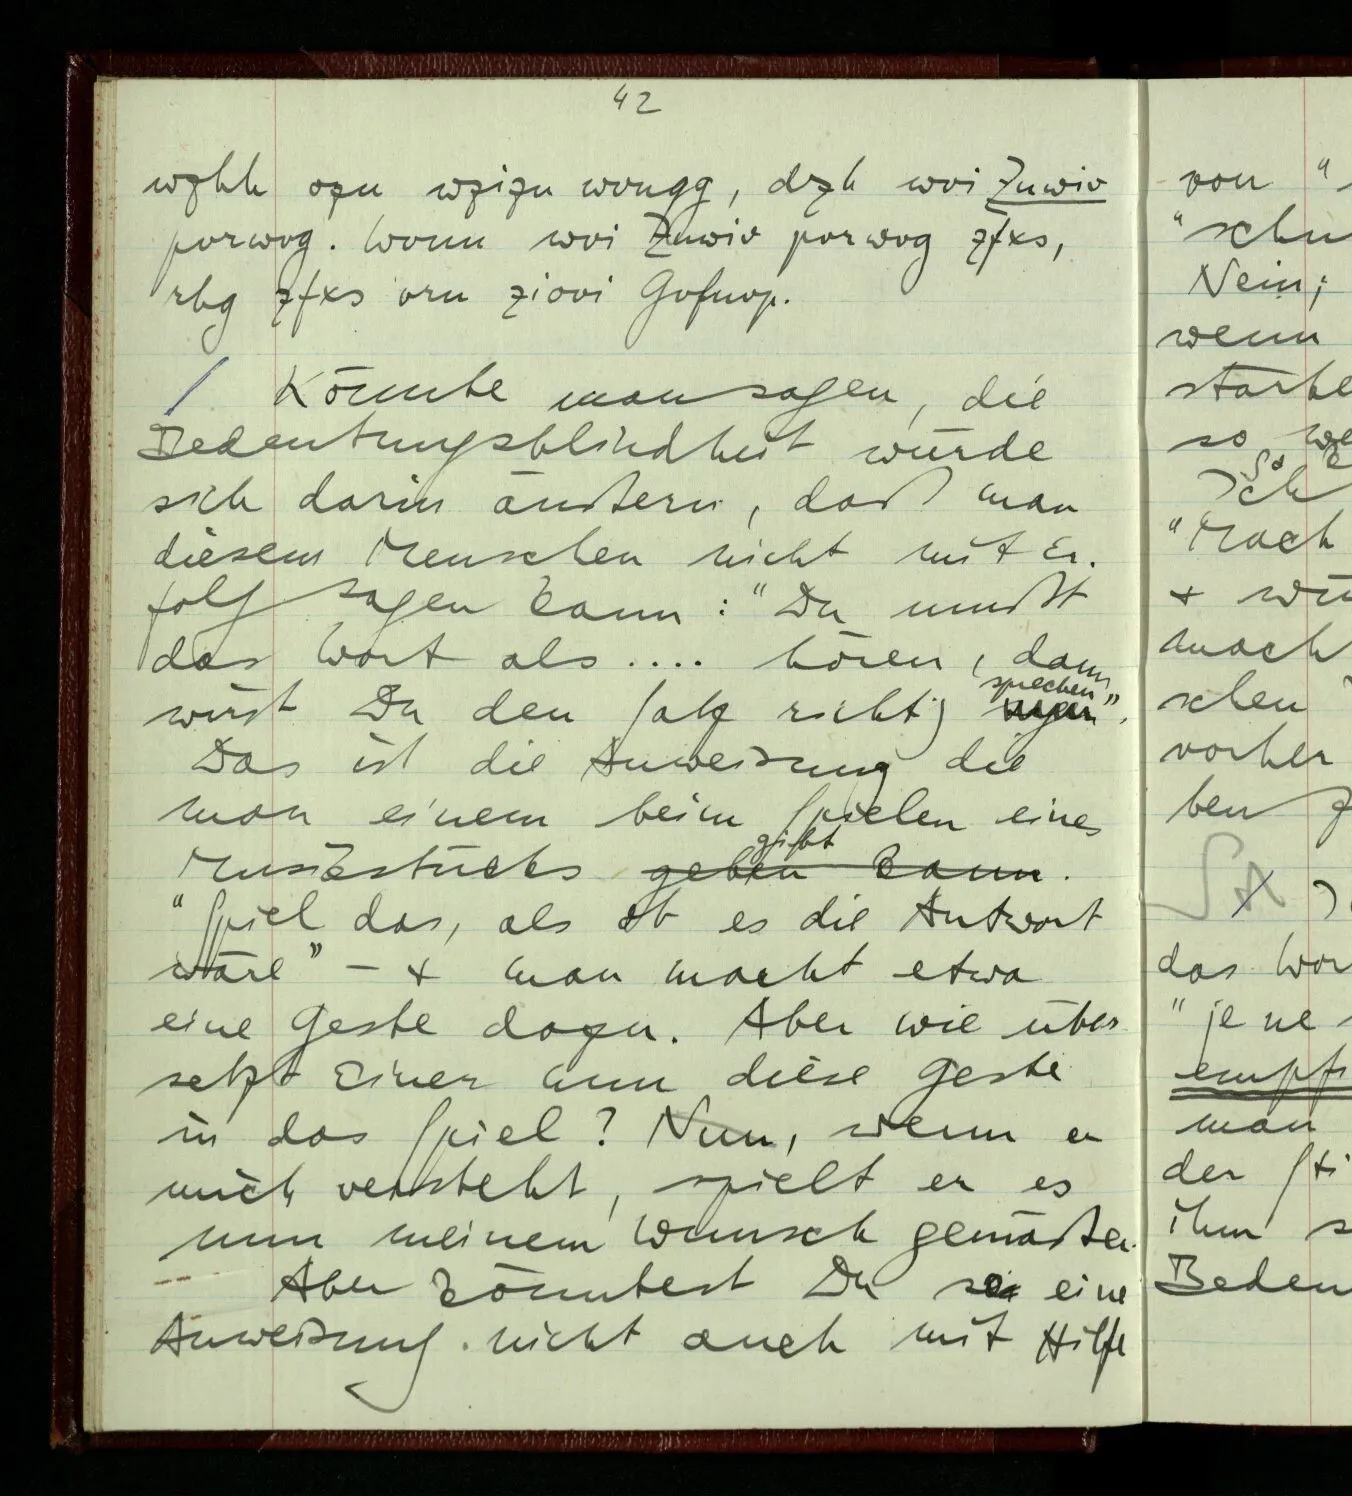 42
wzhh ozu wzizu wvugg, drzh wvi Zuwiv
porwvg. Wvuu wvi Zuwiv porwvg zfxs,
rhg zfxs vru ziovi Gvfuvp.
/ Könnte man sagen, die
Bedeutungsblindheit würde
sich darin äußern, daß man
diesem Menschen nicht mit Er-
folg sagen kann: "Du mußt
das Wort als .... hören, dann
wirst Du den Satz richtig sprechen".
Das ist die Anweisung die
man einem beim Spielen eines
Musikstücks geben kann gibt.
"Spiel das, als ob es die Antwort
wäre" – + man macht etwa
eine Geste dazu. Aber wie über
setzt Einer nun diese Geste
in das Spiel? Nun, wenn er
mich versteht, spielt er es
nun meinem Wunsch gemäßer.
Aber könntest Du so eine
Anweisung nicht auch mit Hilfe
von "
"schn
Nein;
wenn
stärke
so we
So
Ich
"Mach
+ wü
mach
schen
vorher
ben z
das Wor
"je ne s
empf
man
der Sti
ihm s
Bedeu